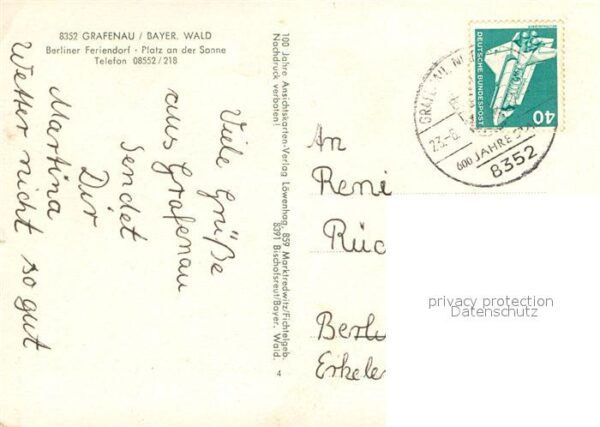 8352 GRAFENAU / BAYER. WALD
Berliner Feriendorf · Platz an der Sonne
Telefon 08552/218
Viele Grüße
aus Grafenau
sendet
Dir
Martina
Wetter nicht so gut
100 Jahre Ansichtskarten-Verlag Löwenhag, 859 Marktredwitz/Fichtelgeb.
Nachdruck verboten! 8391 Bischofsreut/Bayer. Wald.
4
DEUTSCHE BUNDESPOST
40
600 JAHRE
8352
An
Reni
Rüc
Berl
Erkele
privacy protection
Datenschutz